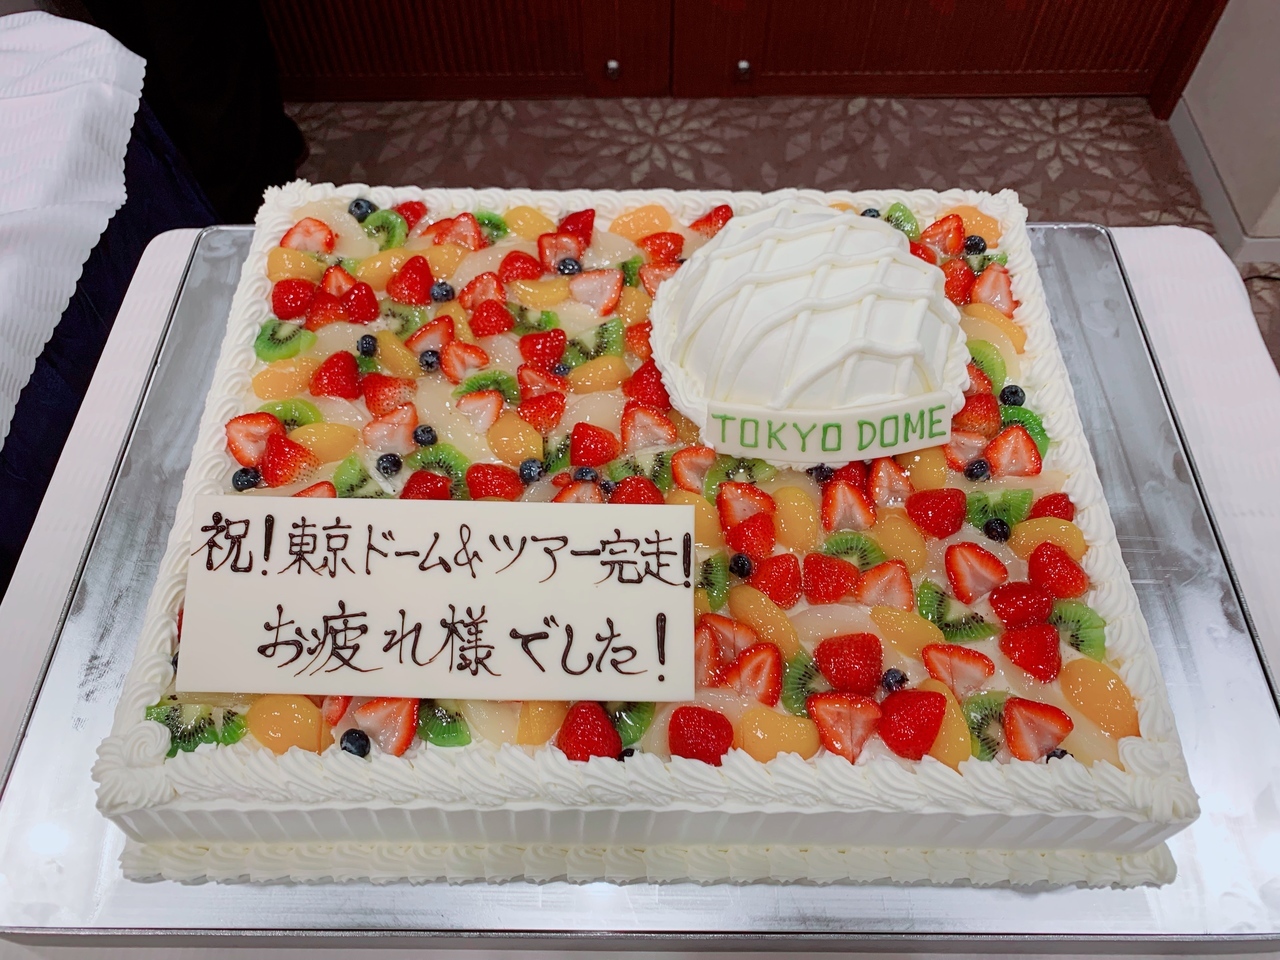 TOKYO DOME
祝!東京ドーム&ツアー完走!
お疲れ様でした!